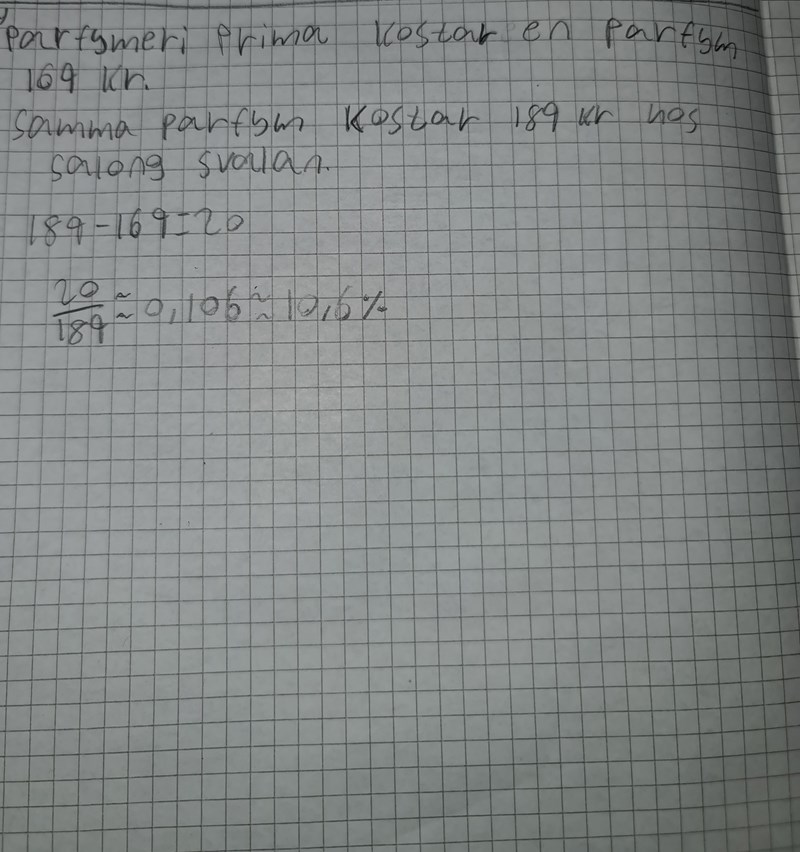 Parfymeri Prima kostar en parfym
169 kr.
Samma parfym kostar 189 kr hos
salong svalan.
189-169=20
20/189 ≈ 0,106 ≈ 10,6%